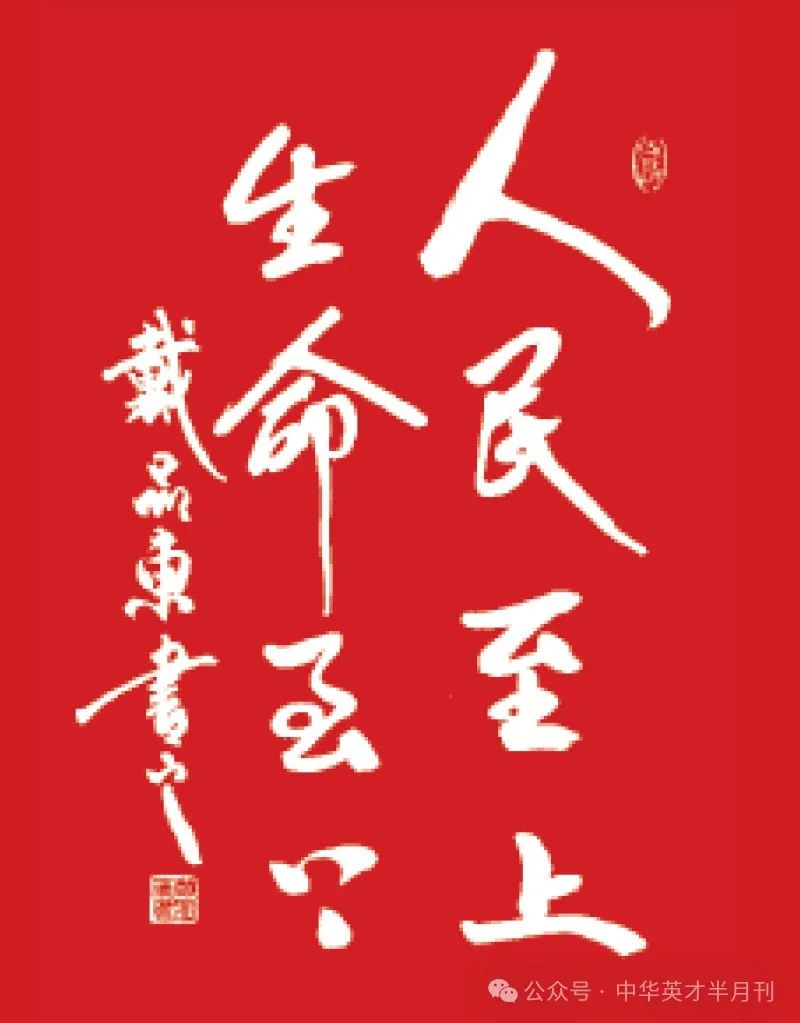 人民至上
生命至上
戴東書
公众号·中华英才半月刊